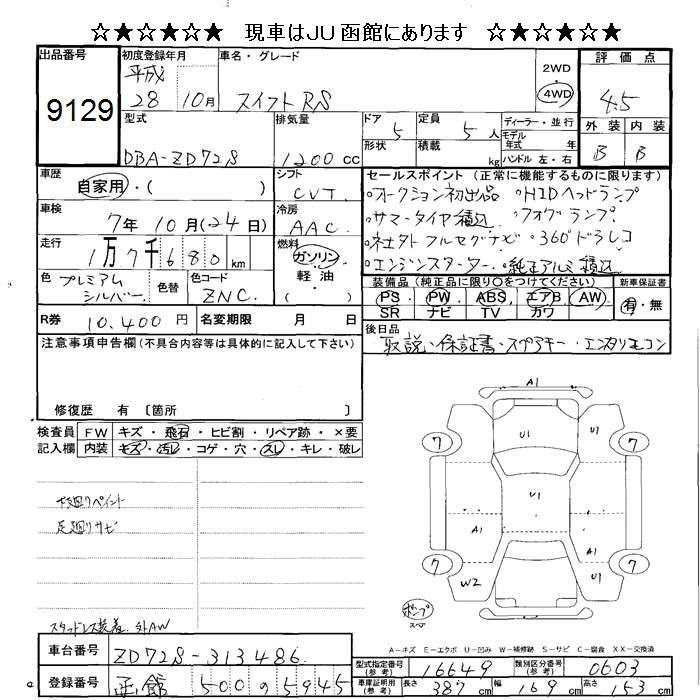 ☆★☆★☆ 現車はJU函館にあります ☆★☆★☆
出品番号 9129
初度登録年月 平成 28 10月
車名・グレード スイフトRS
2WD
4WD
評価点 4.5
外装 B 内装 B
型式 DBA-ZD72S
排気量 1200cc
ドア 5
形状
定員 5人
積載 kg
ディーラー・並行
モデル年式 年式
ハンドル 左・右
車歴 自家用・( )
シフト CVT
車検 7年10月(24日)
冷房 AAC
走行 1万7千680km
燃料 ガソリン
軽油
色 プレミアムシルバー 色替
色コード ZNC
R券 10,400円 名変期限 月 日
セールスポイント(正常に機能するものに限ります)
・オークション初出品 ・HIDヘッドランプ
・サマータイヤ積込 ・フォグランプ
・社外フルセグナビ ・360°ドラレコ
・エンジンスターター ・純正アルミ積込
装備品(純正品に限り○をつけてください)
PS PW ABS エアB AW
SR ナビ TV カワ
新車保証書 有・無
後日品
取説・保証書・スペアキー・エンスタリモコン
注意事項申告欄(不具合内容等は具体的に記入して下さい)
修復歴 有 〔箇所 〕
検査員記入欄 FW キズ・飛石・ヒビ割・リペア跡・×要
内装 キズ・汚レ・コゲ・穴・スレ・キレ・破レ
下廻りペイント
足廻りサビ
スタッドレス装着 外AW
A1
7 U1 U1 7
U1
A1 A1
7 W2 U1 7
ポンプ
スペア
A-キズ E-エクボ U-凹み W-補修跡 S-サビ C-腐食 XX-交換済
車台番号 ZD72S-313486
登録番号 函館 500 の 5945
型式指定番号(参考) 16649 類別区分番号(参考) 0603
車車証明用(参考) 長さ 387cm 幅 169cm 高さ 153cm